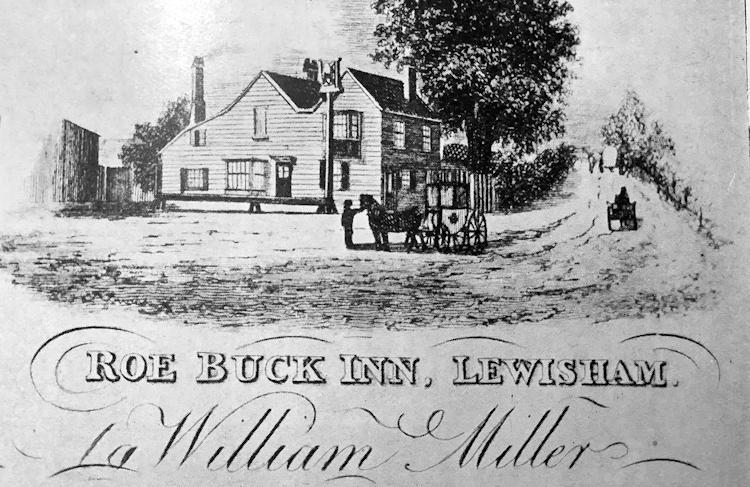 ROE BUCK INN, LEWISHAM.
To William Miller